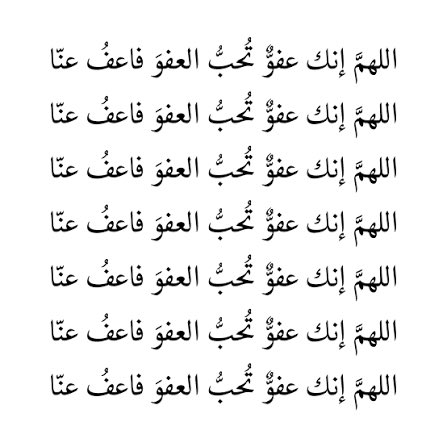 اللهمَّ إنك عفوٌّ تُحبُّ العفوَ فاعفُ عنّا
اللهمَّ إنك عفوٌّ تُحبُّ العفوَ فاعفُ عنّا
اللهمَّ إنك عفوٌّ تُحبُّ العفوَ فاعفُ عنّا
اللهمَّ إنك عفوٌّ تُحبُّ العفوَ فاعفُ عنّا
اللهمَّ إنك عفوٌّ تُحبُّ العفوَ فاعفُ عنّا
اللهمَّ إنك عفوٌّ تُحبُّ العفوَ فاعفُ عنّا
اللهمَّ إنك عفوٌّ تُحبُّ العفوَ فاعفُ عنّا